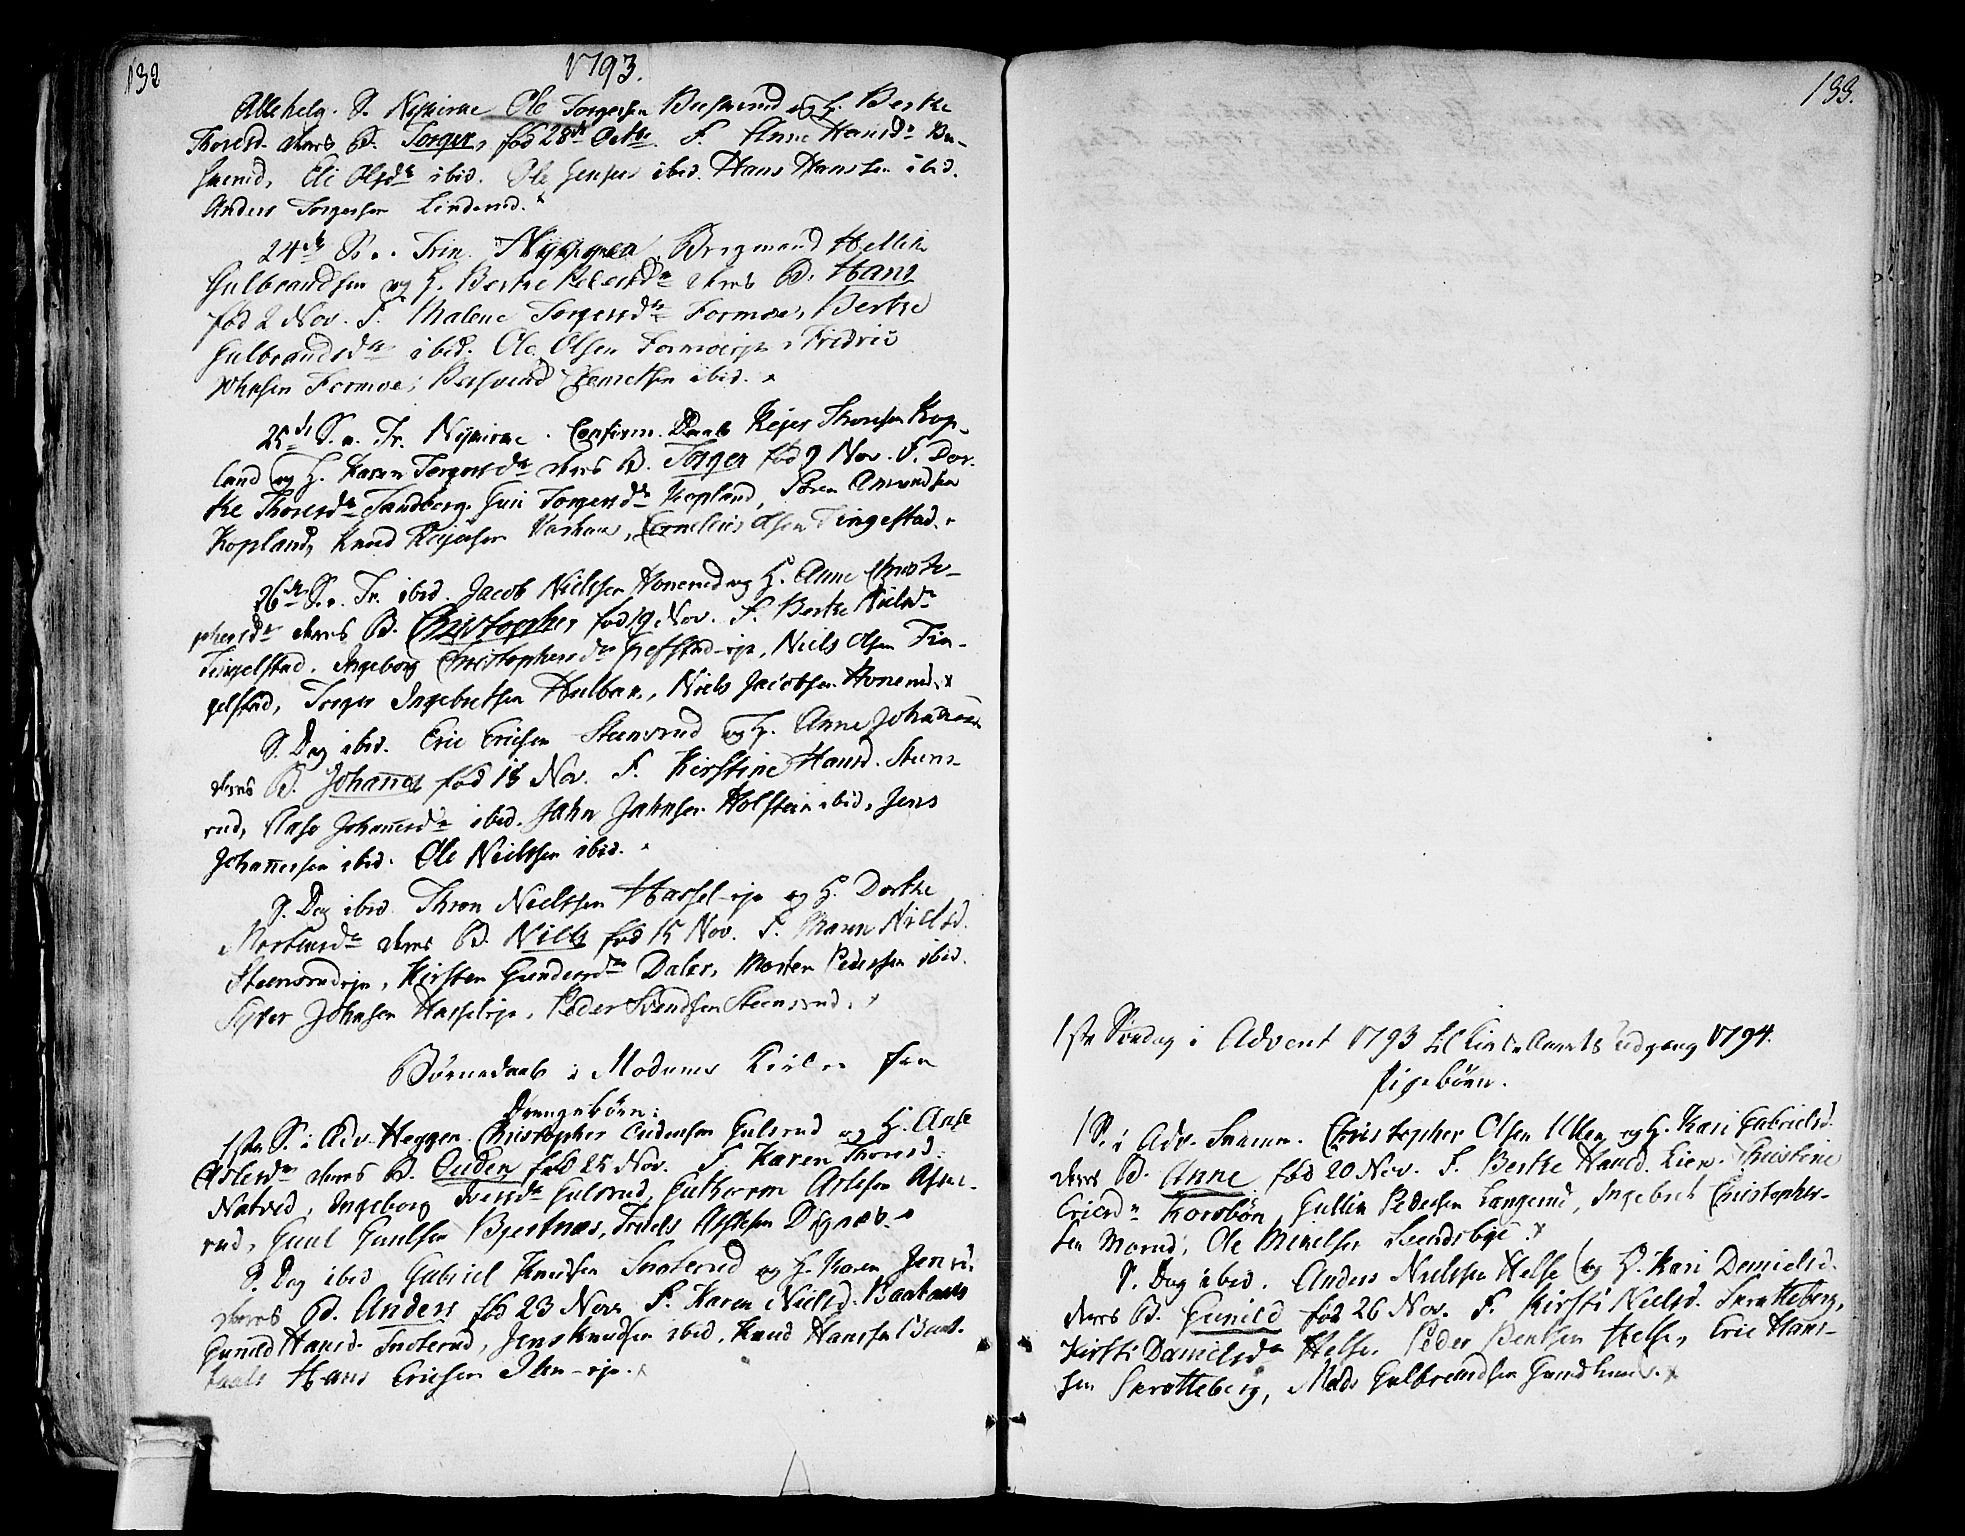 132
1793.
Allehelg. S. Nykirke Ole Torgersen Buserud og H. Berthe
Thoresd. deres B. Torger, fød 28de Octbr. F. Anne Hansdr. Bu-
serud, Eli Olsdr. ibid. Ole Jensen ibid. Hans Hansen ibid.
Anders Torgersen Linderud.
24de S. e. Trin. Heggen Bergmand Hellik
Gulbrandsen og H. Berthe Pedersdr. deres B. Hans
fød 2 Nov. F. Malene Torgersdr. Formoe, Berthe
Gulbrandsdr. ibid. Ole Olsen Formoeeje, Fredric
Johnsen Formoe, ibid.
25de S. e. Tr. Nykirke. Confirm. Daab Thoresen Kop-
land og H. Karen Torgersdr. deres B. Torger fød 9 Nov. F. Dor-
the Thoresdr. Sandberg. Guri Torgersdr. Kopland, Søren Amundsen
Kopland, Knud, Cornelius Olsen Tingelstad.
26de S. e. Tr. ibid. Jacob Nielssen Honerud og H. Anne Christo-
phersdr. deres B. Christopher fød 19 Nov. F. Berthe Nielsdr.
Tingelstad. Ingeborg Christophersdr. Grefstad-eje, Niels Olsen Tin-
gelstad, Torger Ingebretsen Hulbak, Niels Jacobsen Honerud.
S. Dag ibid. Eric Ericsen Steensrud og H. Anne Johannesdr.
deres B. Johannes fød 18 Nov. F. Kirstine Hansd. Steens-
rud, Aase Johannesdr. ibid. Jahn Jahnsen Holstein ibid, Jens
Johannessen ibid. Ole Nielssen ibid.
S. Dag ibid. Thron Nielssen Hassel-eje og H. Dorthe
Mortensdr. deres B. Niels fød 15 Nov. F. Maren Nielsd.
Steensrudeje, Kirsten Gundersdr. Daler, Morten Pedersen ibid.
Syver Johnsen Hasseleje, Peder Svendsen Steensrud.
Børnedaab i Modums Kirker fra
Drengebørn:
1ste S. i Adv. Heggen. Christopher Oudensen Gulsrud og H. Anne
Aslesdr. deres B. Ouden fød 25 Nov. F. Karen Thoresd.
Natved, Ingeborg Iversdr. Gulsrud, Guthorm Aslesen
rud, Gaul Gaulsen Bjertnæs, Troels Aslesen
S. Dag ibid Gabriel Knudsen Snoterud og H. Karen Jensd.
deres B. Anders fød 23 Nov. F. Karen Nielsd.
Gunild Hansd. Snoterud, Jens Knudsen ibid, Knud Hanssen
Hans Ericsen
133.
1ste Søndag i Advent 1793 til Kirke Aarets Udgang 1794.
Pigebørn.
1 S. i Adv. Snarum. Christopher Olsen Ullen og H. Kari Gabrielsd.
deres B. Anne fød 20 Nov. F. Berthe Hansd. Lien. Christine
Ericsdr. Korsbøn, Gullik Pedersen Langerud, Ingebret Christopher-
sen Morud, Ole Mikelsen
S. Dag ibid. Anders Nielssen Helse og H. Kari Danielsd.
deres B. Gunild fød 26 Nov. F. Kirsti Nielsd. Skratteberg,
Kirsti Danielsdr. Helse. Peder Bentsen Helse, Eric Hans-
sen Skratteberg, Mads Gulbrandsen Gundhuus.